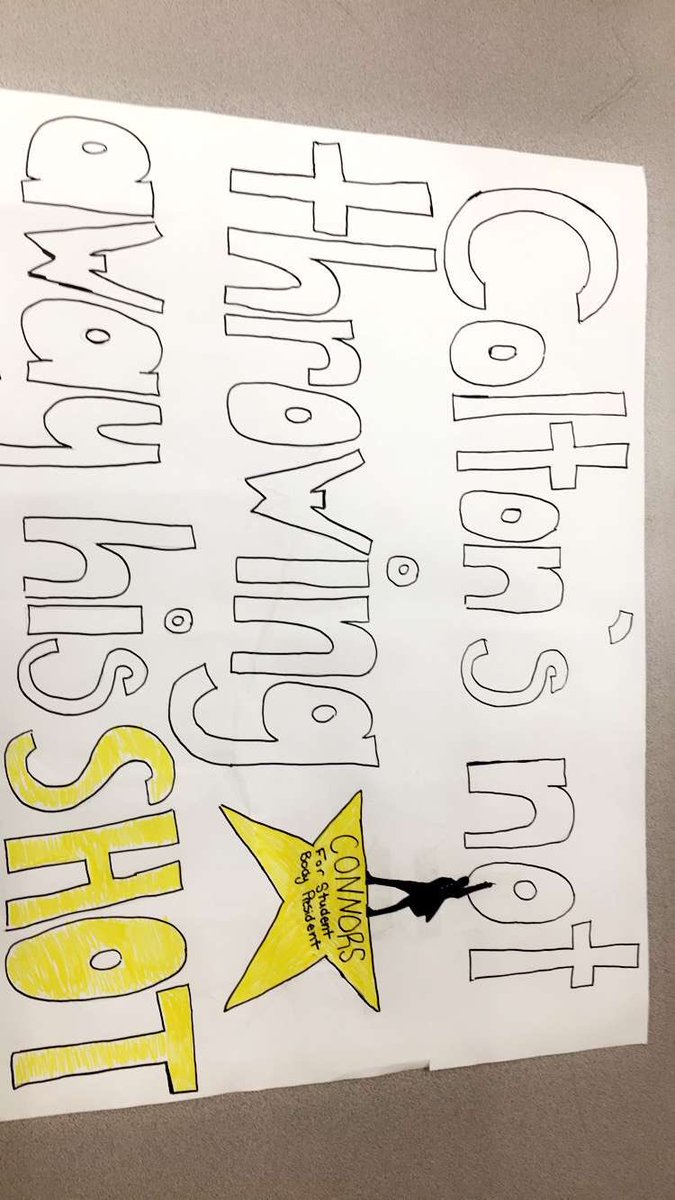 Colton's not
throwing
away his SHOT
CONNORS
For Student
Body President